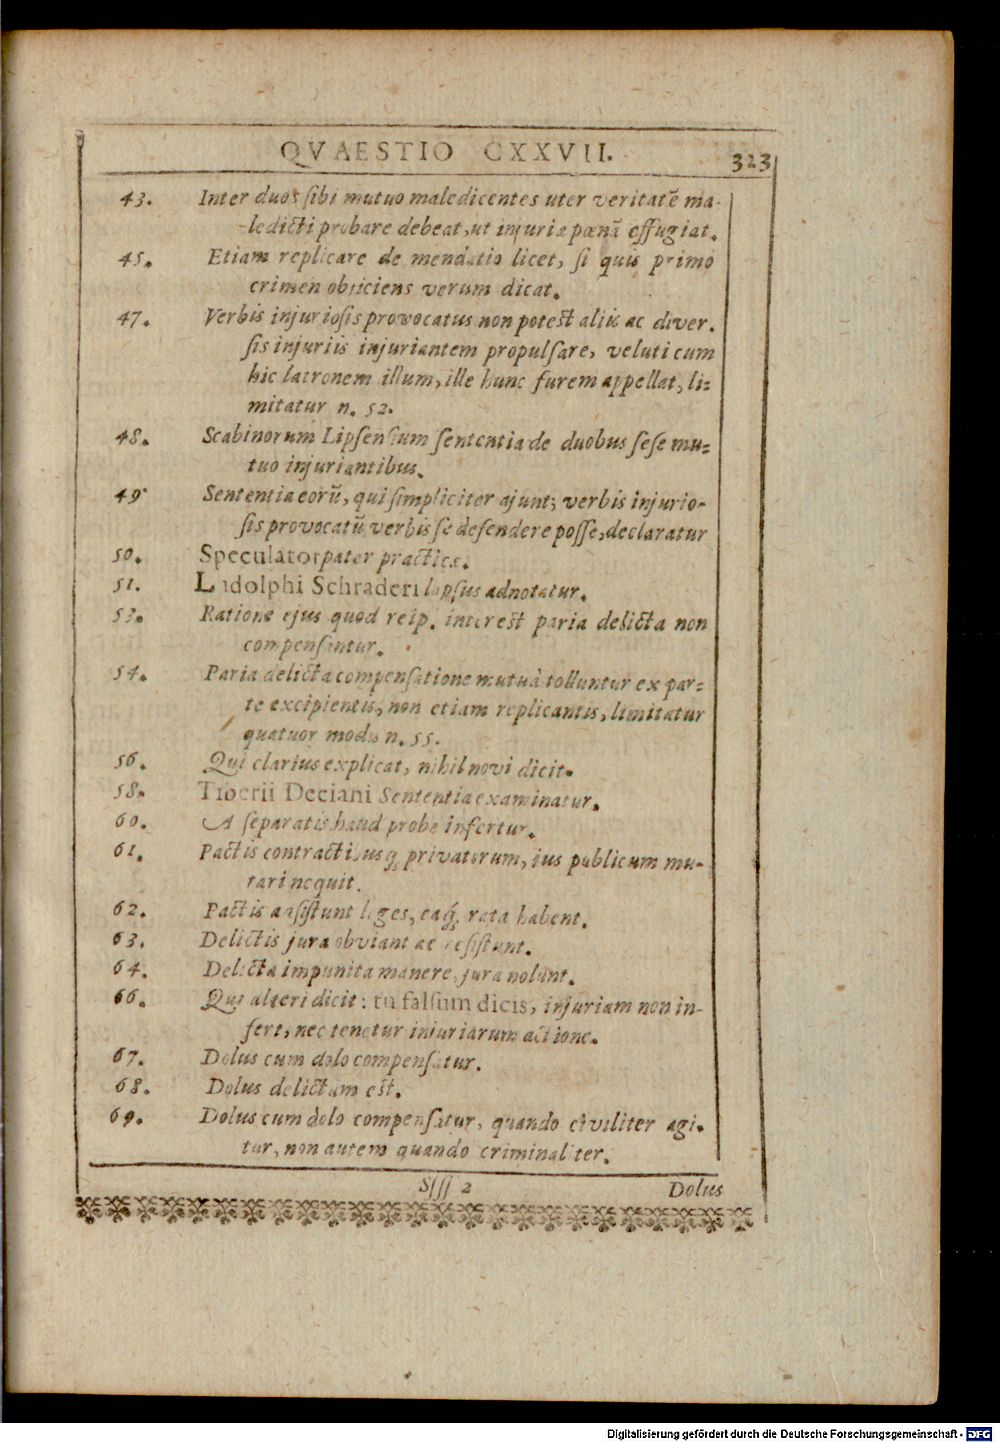 QVAESTIO CXXVII. 323
43. Inter duos sibi mutuo maledicentes uter veritatē ma-
ledicti probare debeat, ut injuriæ pœnā effugiat.
45. Etiam replicare de mendatio licet, si quis primo
crimen objiciens verum dicat.
47. Verbis injuriosis provocatus non potest aliis ac diver.
sis injuriis injuriantem propulsare, veluti cum
hic latronem illum, ille hunc furem appellat, li-
mitatur n. 52.
48. Scabinorum Lipsensium sententia de duobus sese mu-
tuo injuriantibus.
49. Sententia eorū, qui simpliciter ajunt; verbis injurio-
sis provocatū verbis se defendere posse, declaratur
50. Speculator pater practicæ.
51. Ludolphi Schraderi lapsus adnotatur.
53. Ratione ejus quod reip. interest paria delicta non
compensantur.
54. Paria delicta compensatione mutuà tolluntur ex par-
te excipientis, non etiam replicantis, limitatur
quatuor modis n. 55.
56. Qui clarius explicat, nihil novi dicit.
58. Tiberii Deciani Sententia examinatur.
60. A separatis haud probe infertur.
61. Pactis contractibusq; privatorum, jus publicum mu-
tari nequit.
62. Pactis adsistunt leges, eaq́; rata habent.
63. Delictis jura obviant ac resistunt.
64. Delicta impunita manere, jura nolunt.
66. Qui alteri dicit: tu falsum dicis, injuriam non in-
fert, nec tenetur injuriarum actione.
67. Dolus cum dolo compensatur.
68. Dolus delictum est.
69. Dolus cum dolo compensatur, quando civiliter agi-
tur, non autem quando criminaliter.
Ssss 2 Dolus
Digitalisierung gefördert durch die Deutsche Forschungsgemeinschaft - DFG